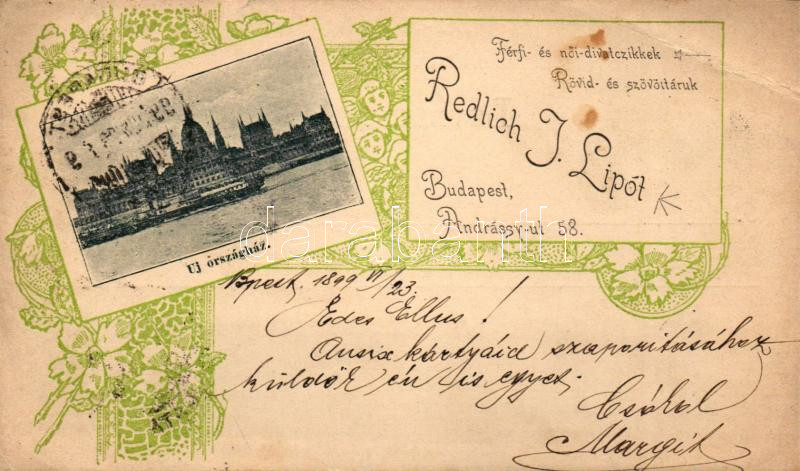 Férfi- és női-divatczikkek
Rövid- és szövöttáruk
Redlich J. Lipót
Budapest,
Andrássy-ut 58.
Uj országház.
darabanth
Bpest. 1899 VI/23.
Edes Ellus!
Ansix kártyáid szaporitásához
küldök én is egyet.
Csókol
Margit